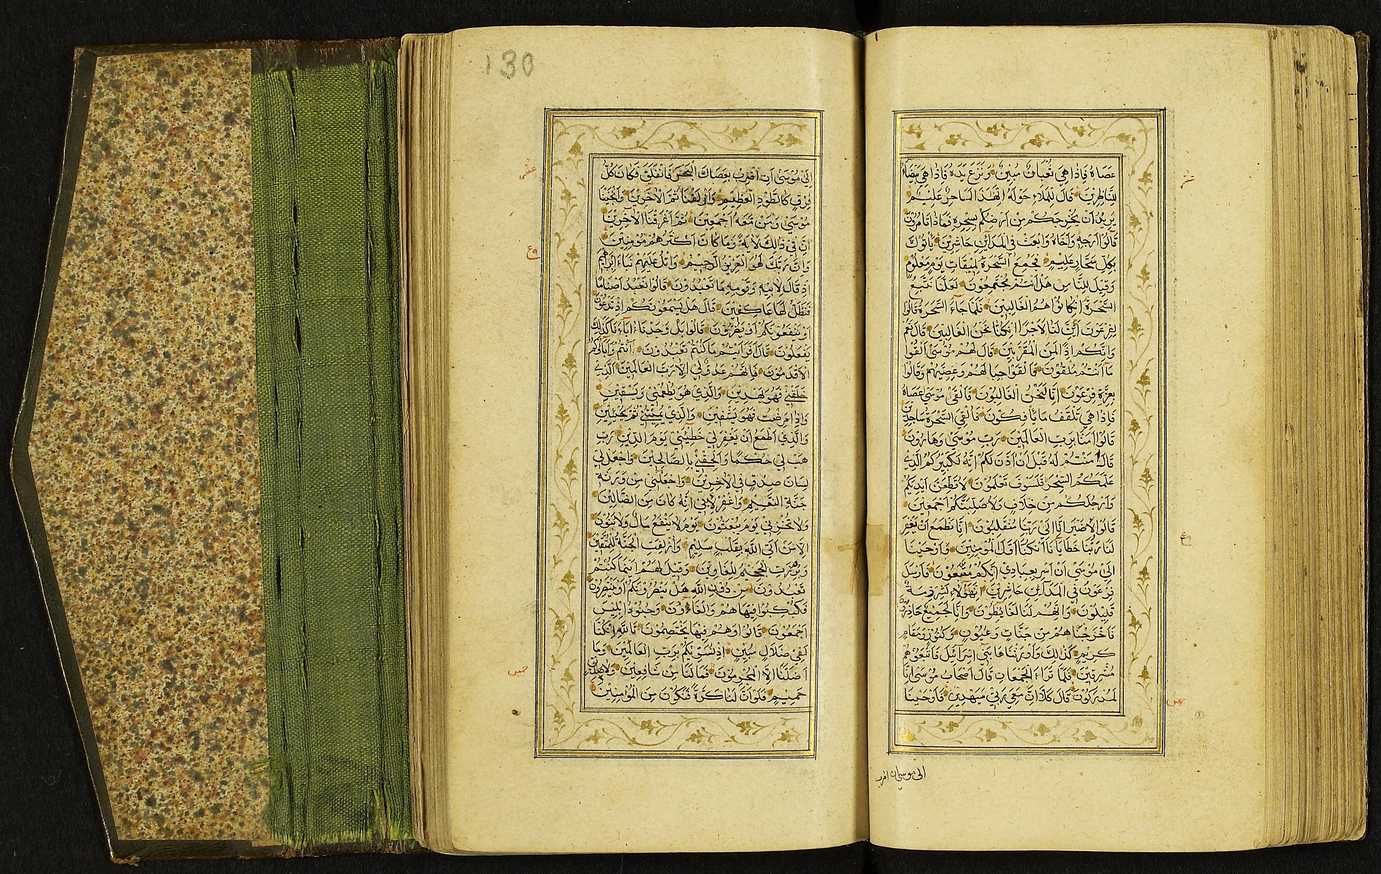 عصاه فاذا هي ثعبان مبين ونزع يده فاذا هي بيضاء
للناظرين قال للملاء حوله ان هذا لساحر عليم
يريد ان يخرجكم من ارضكم بسحره فماذا تامرون
قالوا ارجه واخاه وابعث في المدائن حاشرين ياتوك
بكل سحار عليم فجمع السحرة لميقات يوم معلوم
وقيل للناس هل انتم مجتمعون لعلنا نتبع
السحرة ان كانوا هم الغالبين فلما جاء السحرة قالوا
لفرعون ائن لنا لاجرا ان كنا نحن الغالبين قال نعم
وانكم اذا لمن المقربين قال لهم موسى القوا
ما انتم ملقون فالقوا حبالهم وعصيهم وقالوا
بعزة فرعون انا لنحن الغالبون فالقى موسى عصاه
فاذا هي تلقف ما يافكون فالقي السحرة ساجدين
قالوا امنا برب العالمين رب موسى وهارون
قال امنتم له قبل ان اذن لكم انه لكبيركم الذي
علمكم السحر فلسوف تعلمون لاقطعن ايديكم
وارجلكم من خلاف ولاصلبنكم اجمعين
قالوا لا ضير انا الى ربنا منقلبون انا نطمع ان يغفر
لنا ربنا خطايانا ان كنا اول المؤمنين واوحينا
الى موسى ان اسر بعبادي انكم متبعون فارسل
فرعون في المدائن حاشرين ان هؤلاء لشرذمة
قليلون وانهم لنا لغائظون وانا لجميع حاذرون
فاخرجناهم من جنات وعيون وكنوز ومقام
كريم كذلك واورثناها بني اسرائيل فاتبعوهم
مشرقين فلما تراء الجمعان قال اصحاب موسى انا
لمدركون قال كلا ان معي ربي سيهدين فاوحينا
الى موسى ان اضرب
130
الى موسى ان اضرب بعصاك البحر فانفلق فكان كل
فرق كالطود العظيم وازلفنا ثم الاخرين وانجينا
موسى ومن معه اجمعين ثم اغرقنا الاخرين
ان في ذلك لاية وما كان اكثرهم مؤمنين
وان ربك لهو العزيز الرحيم واتل عليهم نبا ابراهيم
اذ قال لابيه وقومه ما تعبدون قالوا نعبد اصناما
فنظل لها عاكفين قال هل يسمعونكم اذ تدعون
او ينفعونكم او يضرون قالوا بل وجدنا اباءنا كذلك
يفعلون قال افرايتم ما كنتم تعبدون انتم واباؤكم
الاقدمون فانهم عدو لي الا رب العالمين الذي
خلقني فهو يهدين والذي هو يطعمني ويسقين
واذا مرضت فهو يشفين والذي يميتني ثم يحيين
والذي اطمع ان يغفر لي خطيئتي يوم الدين رب
هب لي حكما والحقني بالصالحين واجعل لي
لسان صدق في الاخرين واجعلني من ورثة
جنة النعيم واغفر لابي انه كان من الضالين
ولا تخزني يوم يبعثون يوم لا ينفع مال ولا بنون
الا من اتى الله بقلب سليم وازلفت الجنة للمتقين
وبرزت الجحيم للغاوين وقيل لهم اينما كنتم
تعبدون من دون الله هل ينصرونكم او ينتصرون
فكبكبوا فيها هم والغاوون وجنود ابليس
اجمعون قالوا وهم فيها يختصمون تالله ان كنا
لفي ضلال مبين اذ نسويكم برب العالمين وما
اضلنا الا المجرمون فما لنا من شافعين ولا صديق
حميم فلو ان لنا كرة فنكون من المؤمنين